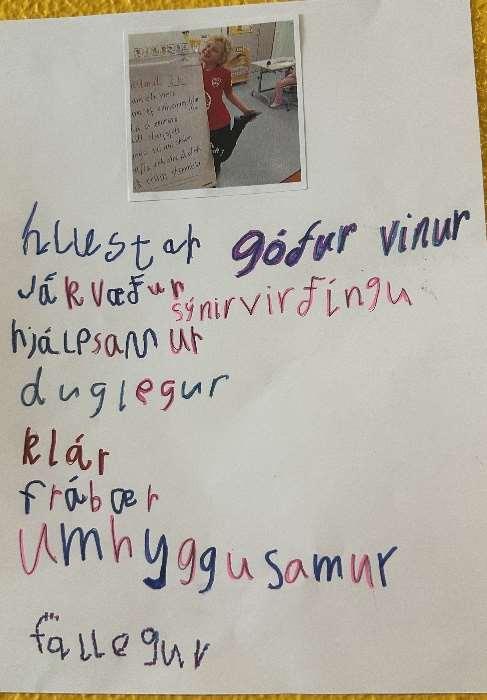 hlustar góður vinur
jákvæður
sýnir virðingu
hjálpsamur
duglegur
klár
frábær
umhyggusamur
fallegur